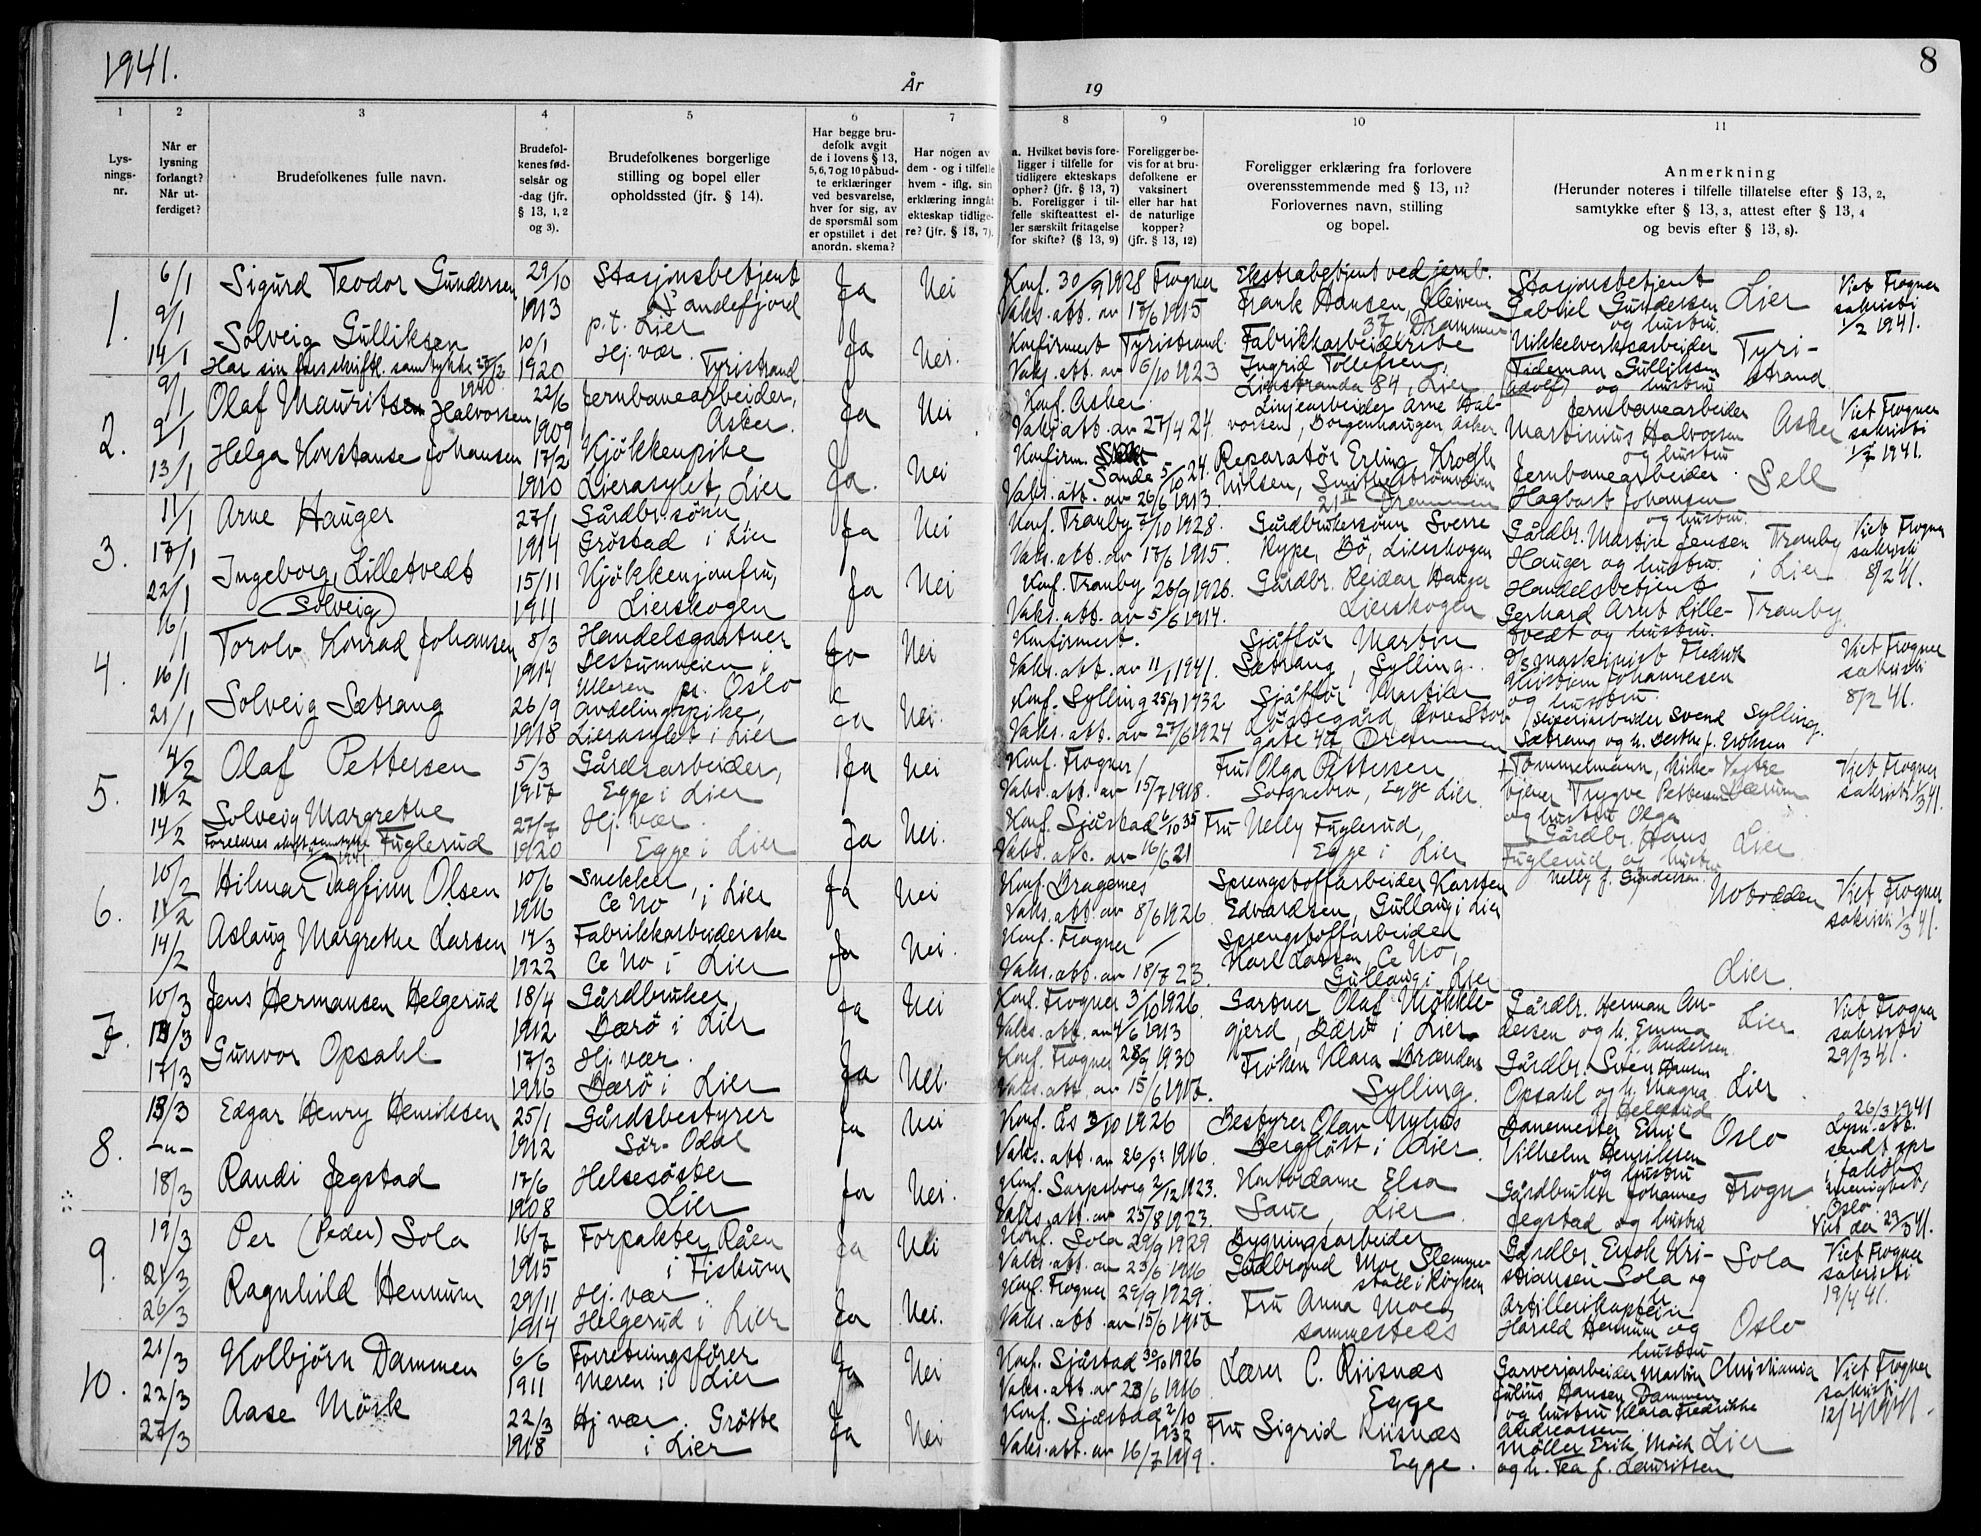 1941.
År
19
8
1
Lys-
nings-
nr.
2
Når er
lysning
forlangt?
Når ut-
ferdiget?
3
Brudefolkenes fulle navn.
4
Brudefol-
kenes fød-
selsår og
-dag (jfr.
§ 13, 1, 2
og 3).
5
Brudefolkenes borgerlige
stilling og bopel eller
opholdssted (jfr. § 14).
6
Har begge bru-
defolk avgit
de i lovens § 13,
5, 6, 7 og 10 påbud-
te erklæringer
ved besvarelse,
hver for sig, av
de spørsmål som
er opstillet i det
anordn. skema?
7
Har nogen av
dem - og i tilfelle
hvem - iflg. sin
erklæring inngåt
ekteskap tidlige-
re? (jfr. § 13, 7).
8
a. Hvilket bevis fore-
ligger i tilfelle for
tidligere ekteskaps
ophør? (jfr. § 13, 7)
b. Foreligger i til-
felle skifteattest el-
ler særskilt fritagelse
for skifte? (§ 13, 9)
9
Foreligger be-
vis for at bru-
defolkene er
vaksinert
eller har hat
de naturlige
kopper?
(jfr. § 13, 12)
10
Foreligger erklæring fra forlovere
overensstemmende med § 13, 11?
Forlovernes navn, stilling
og bopel.
11
Anmerkning
(Herunder noteres i tilfelle tillatelse efter § 13, 2,
samtykke efter § 13, 3, attest efter § 13, 4
og bevis efter § 13, 8).
1.
6/1
9/1
14/1
Sigurd Teodor Gundersen
29/10
1913
Stasjonsbetjent
Sandefjord
p.t. Lier
Ja
Nei
Konf. 30/9 1928 Frogner
Vaks. att. av 17/6 1915
Ekstrabetjent ved jernb.
Frank Hansen, Kleivene
37, Drammen
Stasjonsbetjent
Gabriel Gundersen
og hustru
Lier
Viet Frogner
sakristi
1/2 1941.
Solveig Gulliksen
Har sin fars skriftl. samtykke 27/12
1940
10/1
1920
Hj. vær.
Tyristrand
Ja
Nei.
Konfirmert Tyristrand.
Vaks. att. av 6/10 1923
Fabrikkarbeiderske
Ingrid Tollefsen,
Lierstranda 84, Lier
Nikkelverksarbeider
Tideman Gulliksen
(Adolf) og hustru
Tyri-
strand
2.
9/1
9/1
13/1
Olaf Mauritsen Halvorsen
22/6
1909
Jernbanearbeider,
Asker.
Ja
Nei
Konf. Asker.
Vaks. att. av 27/4 24.
Linjearbeider Arne Hal-
vorsen, Borgenhaugen, Asker
Jernbanearbeider
Martinius Halvorsen
og hustru
Asker
Viet Frogner
sakristi
1/2 1941.
Helga Konstanse Johansen
17/2
1910
Kjøkkenpike
Lierasylet, Lier
Ja.
Nei
Konfirm.
Sande 5/10 24.
Vaks. att. av 26/6 1913.
Reparatør Erling Krogh
Nilsen,
21 II Drammen
Jernbanearbeider
Hagbart Johansen
og hustru.
Sell
3.
11/1
17/1
22/1
Arne Hauger
27/1
1914
Gårdbr.sønn,
Grøstad i Lier
Ja
Nei
Konf. Tranby 7/10 1928.
Vaks. att. av 17/6 1915.
Gårdbrukersønn Sverre
Rype, Bø, Lierskogen
Gårdbr. Martin Jensen
Hauger og hustru.
Tranby
i Lier
Viet Frogner
sakristi
8/2 41.
Ingeborg Lilletvedt
(Solveig)
15/11
1911
Kjøkkenjomfru,
Lierskogen
Ja
Nei
Konf. Tranby 26/9 1926.
Vaks. att. av 5/6 1914.
Gårdbr. Reidar Hauger
Lierskogen
Handelsbetjent
Gerhard Arnt Lille-
tvedt og hustru.
Tranby
4.
16/1
16/1
21/1
Torolv Konrad Johansen
8/3
1914
Handelsgartner
i
Ulleren pr. Oslo
Ja
Nei
Konfirmert.
Vaks. att. av 11/1 1941.
Sjåffør Martin
Sætrang, Sylling.
D/S maskinist Fredrik
Kristian Johannesen
og hustru
Viet Frogner
sakristi
8/2 41.
Solveig Sætrang
26/9
1918
Avdelingspike,
Lierasylet i Lier
Ja
Nei.
Konf. Sylling 25/9 1932
Vaks. att. av 27/6 1924
Sjåffør Martin
Øvre Stor-
gate 47 Drammen
Svend
Sætrang og h. Berthe f. Eriksen
Sylling.
5.
4/2
11/2
14/2
Olaf Pettersen
5/3
1917
Gårdsarbeider,
Egge i Lier
Ja
Nei
Konf. Frogner,
Vaks. att. av 15/7 1918.
Fru Olga Pettersen
Sognebro, Egge Lier.
Tømmermann, kirke-
tjener Trygve Pettersen
og hustru Olga
Vestre
Bærum
Viet Frogner
sakristi 1/3 41.
Solveig Margrethe
Fuglerud
Foreldres skriftl. samtykke
1941
27/7
1920
Hj. vær.
Egge i Lier
Ja
Nei.
Konf. Sjåstad 6/10 35
Vaks. att. av 16/6 21
Fru Nelly Fuglerud,
Egge i Lier
Gårdbr. Hans
Fuglerud og hustru
Nelly f. Gundersen
Lier
6.
10/2
11/2
14/2
Hilmar Dagfinn Olsen
10/6
1916
Snekker
Ce No, i Lier
Ja
Nei
Konf. Bragernes
Vaks. att. av 8/6 1926
Sprengstoffarbeider Karsten
Edvardsen, Gullaug i Lier
Notodden
Viet Frogner
sakristi 1/3 41.
Aslaug Margrethe Larsen
14/3
1922
Fabrikkarbeiderske
Ce No i Lier
Ja
Nei.
Konf. Frogner
Vaks. att. av 18/7 23.
Sprengstoffarbeider
Karl Larsen, Ce No,
Gullaug i Lier
Lier
7.
10/3
13/3
17/3
Jens Hermansen Helgerud
18/4
1912
Gårdbruker,
Bærø i Lier
Ja
Nei
Konf. Frogner 3/10 1926.
Vaks. att. av 4/6 1913
Gartner Olaf Møkkle-
gjerd, Bærø i Lier
Gårdbr. Herman An-
dersen og h. Emma
f. Andersen
Lier
Viet Frogner
sakristi
29/3 41.
Gunvor Opsahl
17/3
1916
Hj. vær.
Bærø i Lier
Ja
Nei.
Konf. Frogner 28/9 1930
Vaks. att. av 15/6 1917.
Frøken Klara Brænden
Sylling.
Gårdbr. Sven Hansen
Opsahl og h. Magna
f. Helgerud
Lier
8.
13/3
-"-
18/3
Edgar Henry Henriksen
25/1
1912
Gårdsbestyrer
Sør-Odal
Ja
Nei
Konf. Ås 3/10 1926
Vaks. att. av 26/ 1916.
Bestyrer Olav Nyhus
Bergflødt i Lier.
Banemester Emil
Vilhelm Henriksen
og hustru
Oslo
26/3 1941
Lysn. att.
sendt spr
i Jakobs
menighet,
Oslo.
Viet der 29/3 41.
Randi Jegstad
17/6
1908
Helsesøster
Lier
Ja
Nei.
Konf. Sarpsborg 2/12 1923.
Vaks. att. av 25/8 1923.
Kontordame Elsa
Saue, Lier
Gårdbruker Johannes
Jegstad og hustru
Frogn
9.
19/3
21/3
26/3
Per (Peder) Sola
16/7
1915
Forpakter, Råen
i Fiskum
Ja
Nei
Konf. Sola 29/9 1929
Vaks. att. av 23/6 1916
Bygningsarbeider
Gudbrand Moe, Slemme-
stad i Røyken
Gårdbr. Enok Kri-
stiansen Sola og
h.
Sola
Viet Frogner
sakristi
19/4 41.
Ragnhild Hennum
29/11
1914
Hj. vær
Helgerud i Lier
Ja
Nei.
Konf. Frogner 29/9 1929.
Vaks. att. av 15/6 1917
Fru Anna Moe,
sammesteds
Artillerikaptein
Harald Hennum og
hustru
Oslo
10.
21/3
22/3
27/3
Kolbjørn Dammen
6/6
1911
Forretningsfører
Meren i Lier
Ja
Nei
Konf. Sjåstad 30/10 1926
Vaks. att. av 23/6 1916
Lærer C. Riisnæs
Egge
Garverjarbeider Martin
Julius Hansen Dammen
og hustru Klara Fredrikke
Andreassen
Christiania
Viet Frogner
sakristi
12/4 1941.
Aase Mörk
22/3
1918
Hj vær. Grøtte
i Lier
Ja
Nei
Konf. Sjåstad 2/10
1932
Vaks. att. av 16/7 1919.
Fru Sigrid Riisnæs
Egge.
Møller Erik Mörk
og h. Tea f. Lauritsen
Lier